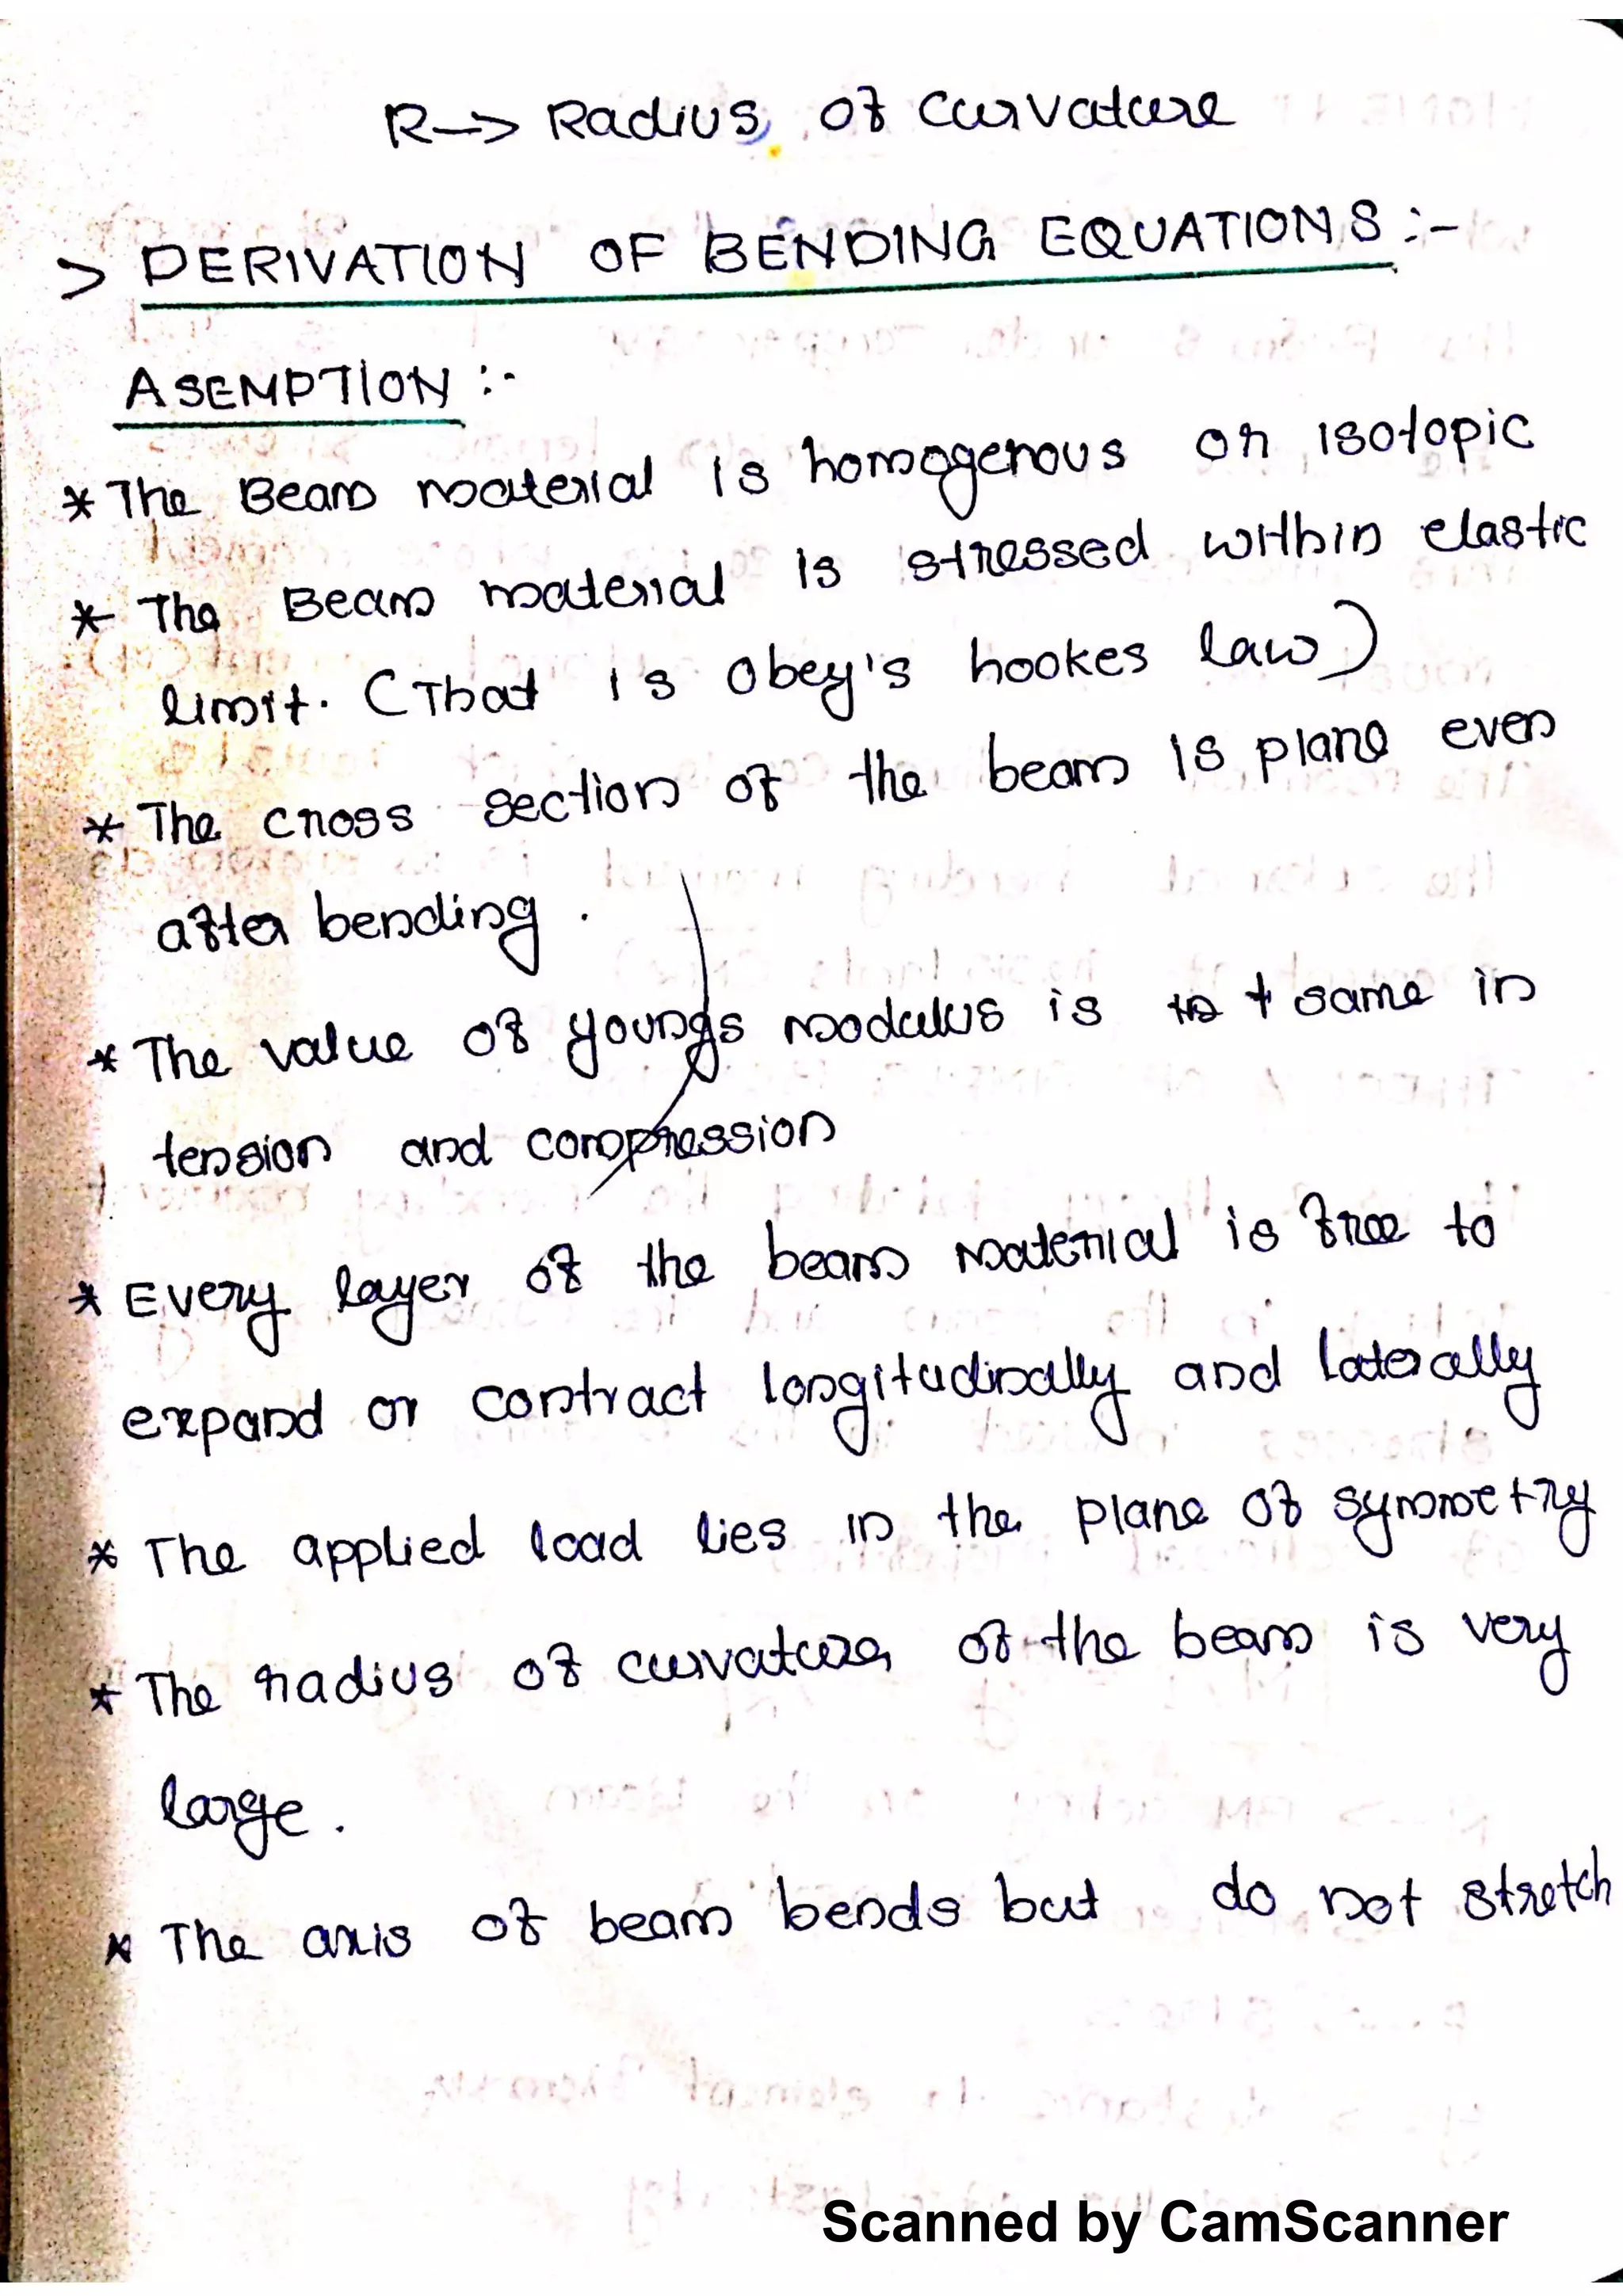 R → Radius of Curvature
> DERIVATION OF BENDING EQUATIONS :-
ASEMPTION :-
* The Beam material is homogenous or isotopic
* The Beam material is stressed within elastic
limit. (That is obey's hookes law)
* The cross section of the beam is plane even
after bending.
* The value of youngs modulus is same in
tension and compression
* Every layer of the beam material is free to
expand or contract longitudinally and laterally
* The applied load lies in the plane of symmetry
* The radius of curvature of the beam is very
large.
* The axis of beam bends but do not stretch
Scanned by CamScanner